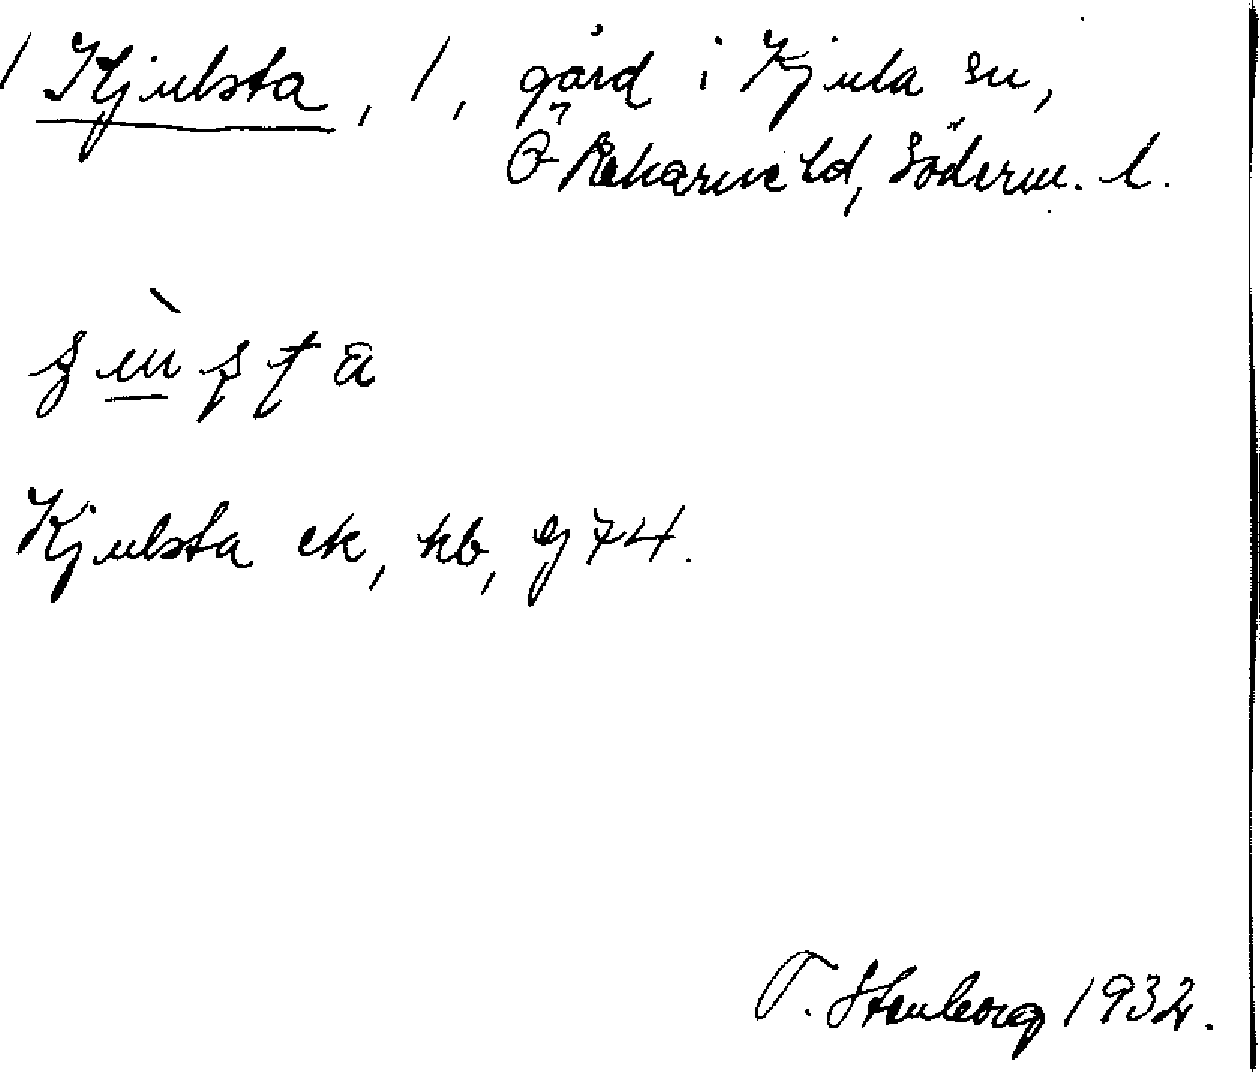 / Kjulsta, 1, gård i Kjula sn,
Ö Rekarne hd, Söderm. l.
Kjulsta ek, hb, gj 74.
T. Stenborg 1932.